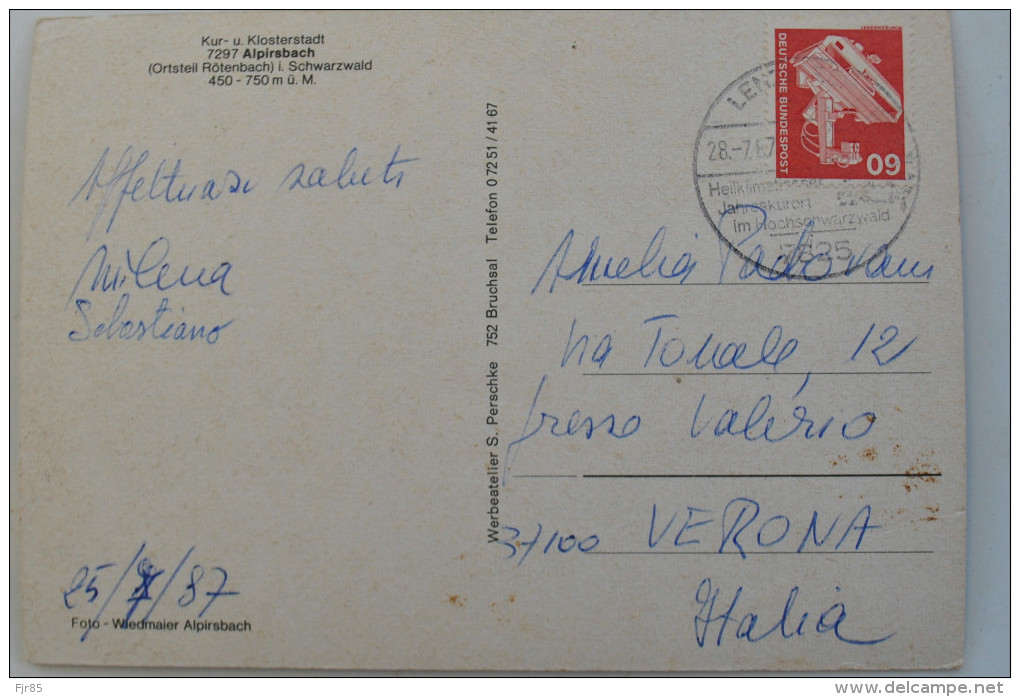 Kur- u. Klosterstadt
7297 Alpirsbach
(Ortsteil Rötenbach) i. Schwarzwald
450 - 750 m ü. M.
Affettuosi saluti
Milena
Sebastiano
25/7/87
Foto - Wiedmaier Alpirsbach
Werbeatelier S. Perschke 752 Bruchsal Telefon 0 72 51 / 41 67
DEUTSCHE BUNDESPOST
60
LENZ
28.-7.87
Heilklimatischer
Jahreskurort
im Hochschwarzwald
7825
Amelia Padovani
Via Tonale, 12
presso Valerio
37100 VERONA
Italia
Fjr85
www.delcampe.net